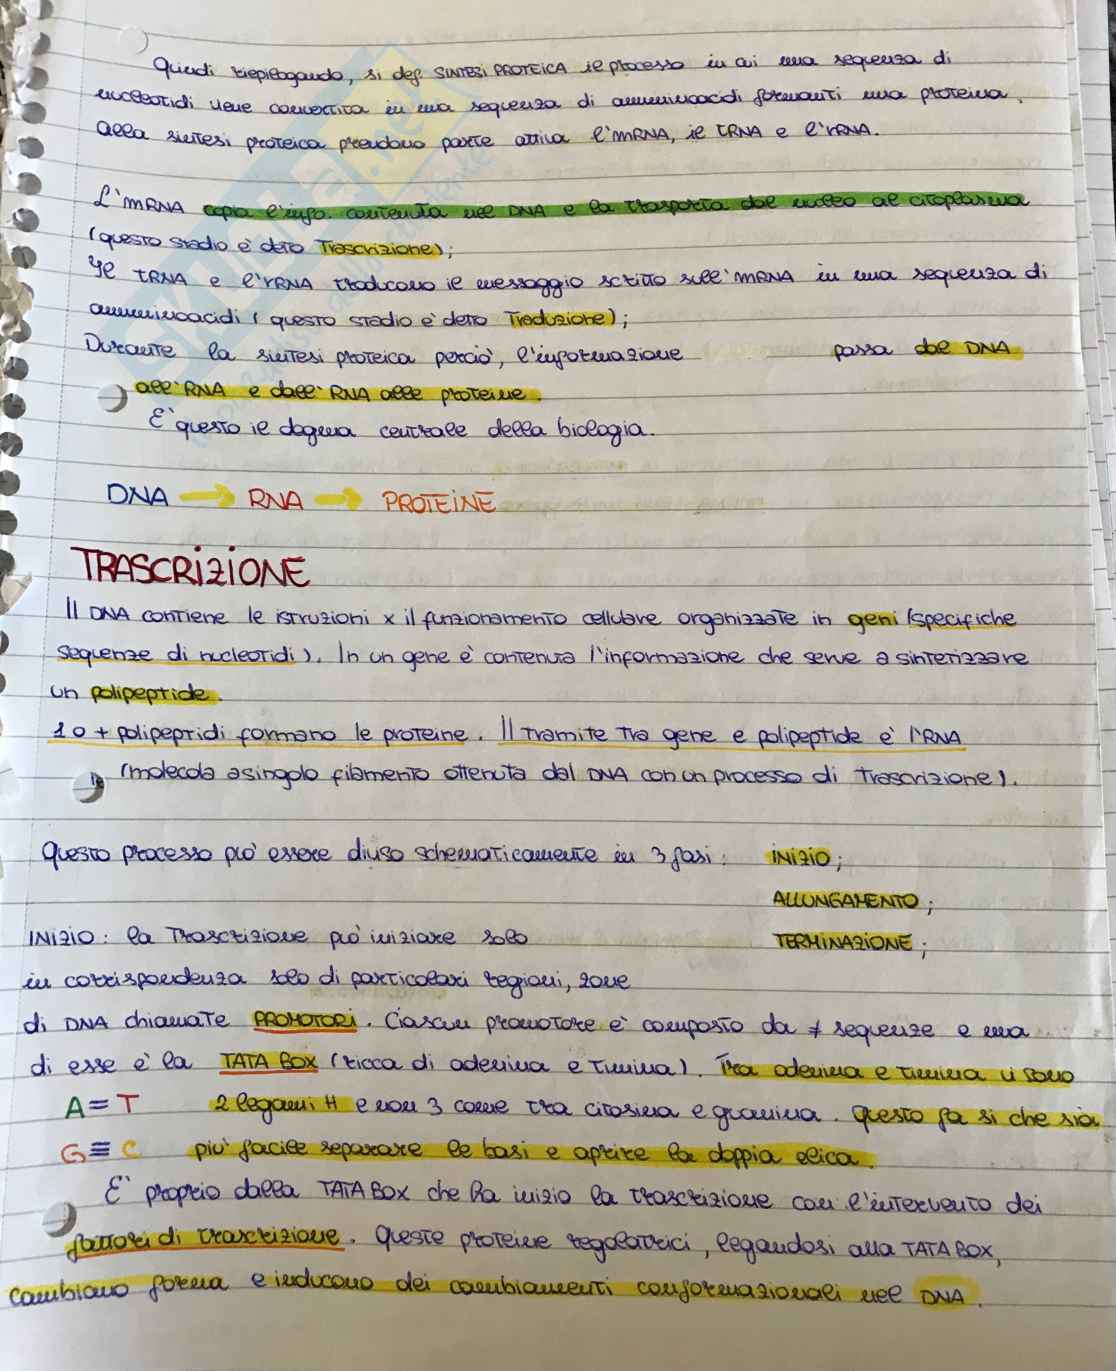 Quindi riepilogando, si def SINTESI PROTEICA il processo in cui una sequenza di
nucleotidi viene convertita in una sequenza di amminoacidi formanti una proteina.
Alla sintesi proteica prendono parte attiva l'mRNA, il tRNA e l'rRNA.
L'mRNA copia l'info. contenuta nel DNA e la trasporta dal nucleo al citoplasma
(questo stadio è detto Trascrizione);
Il tRNA e l'rRNA traducono il messaggio scritto sull'mRNA in una sequenza di
amminoacidi (questo stadio è detto Traduzione);
Durante la sintesi proteica perciò, l'informazione passa dal DNA
all'RNA e dall'RNA alle proteine.
E' questo il dogma centrale della biologia.
DNA → RNA → PROTEINE
TRASCRIZIONE
Il DNA contiene le istruzioni x il funzionamento cellulare organizzate in geni (specifiche
sequenze di nucleotidi). In un gene è contenuta l'informazione che serve a sintetizzare
un polipeptide.
1 o + polipeptidi formano le proteine. Il tramite tra gene e polipeptide è l'RNA
(molecola a singolo filamento ottenuta dal DNA con un processo di trascrizione).
Questo processo può essere diviso schematicamente in 3 fasi: INIZIO;
ALLUNGAMENTO;
INIZIO: la Trascrizione può iniziare solo TERMINAZIONE;
in corrispondenza solo di particolari regioni, zone
di DNA chiamate PROMOTORI. Ciascun promotore è composto da ≠ sequenze e una
di esse è la TATA BOX (ricca di adenina e timina). Tra adenina e timina vi sono
A=T 2 legami H e non 3 come tra citosina e guanina. Questo fa si che sia
G≡C più facile separare le basi e aprire la doppia elica.
E' proprio dalla TATA BOX che ha inizio la trascrizione con l'intervento dei
fattori di trascrizione. Queste proteine regolatrici, legandosi alla TATA BOX,
cambiano forma e inducono dei cambiamenti conformazionali nel DNA.